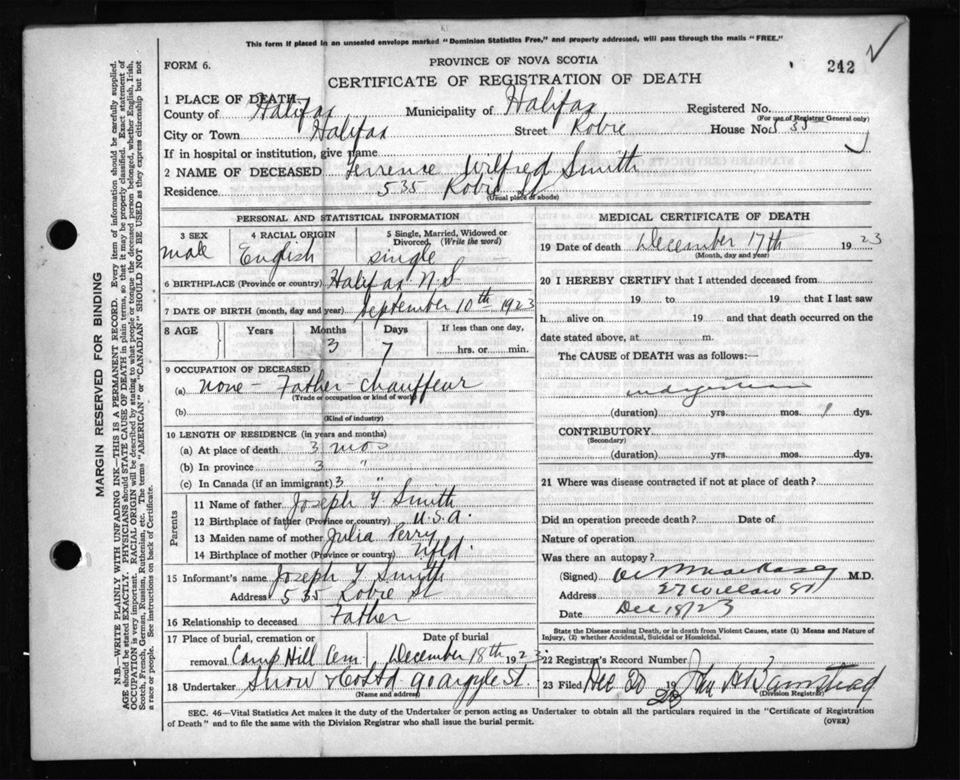 This form if placed in an unsealed envelope marked "Dominion Statistics Free," and properly addressed, will pass through the mails "FREE."
FORM 6.
PROVINCE OF NOVA SCOTIA
242
CERTIFICATE OF REGISTRATION OF DEATH
1 PLACE OF DEATH
County of Halifax Municipality of Halifax Registered No.
(For use of Registrar General only)
City or Town Halifax Street Robie House No. 535
If in hospital or institution, give name
2 NAME OF DECEASED Terrence Wilfred Smith
Residence 535 Robie St
(Usual place of abode)
PERSONAL AND STATISTICAL INFORMATION
3 SEX 4 RACIAL ORIGIN 5 Single, Married, Widowed or
Divorced, (Write the word)
male English single
6 BIRTHPLACE (Province or country) Halifax N.S
7 DATE OF BIRTH (month, day and year) September 10th 1923
8 AGE Years Months Days If less than one day,
3 7 hrs. or min.
9 OCCUPATION OF DECEASED
(a) none - Father chauffeur
(Trade or occupation or kind of work)
(b)
(Kind of industry)
10 LENGTH OF RESIDENCE (in years and months)
(a) At place of death 3 mos
(b) In province 3 "
(c) In Canada (if an immigrant) 3 "
Parents
11 Name of father Joseph Y Smith
12 Birthplace of father (Province or country) U.S.A.
13 Maiden name of mother Julia Perry
14 Birthplace of mother (Province or country) Nfld.
15 Informant's name Joseph Y Smith
Address 535 Robie St
16 Relationship to deceased Father
17 Place of burial, cremation or Date of burial
removal Camp Hill Cem December 18th 1923
18 Undertaker Snow & Co Ltd 90 Argyle St.
(Name and address)
MEDICAL CERTIFICATE OF DEATH
19 Date of death December 17th 1923
(Month, day and year)
20 I HEREBY CERTIFY that I attended deceased from
19 to 19 that I last saw
h alive on 19 and that death occurred on the
date stated above, at m.
The CAUSE of DEATH was as follows:—
indigestion
(duration) yrs. mos. 1 dys.
CONTRIBUTORY
(Secondary)
(duration) yrs. mos. dys.
21 Where was disease contracted if not at place of death?
Did an operation precede death? Date of
Nature of operation
Was there an autopsy?
(Signed) M.D.
Address 27 Willow St
Date Dec 18/23
State the Disease causing Death, or in death from Violent Causes, state (1) Means and Nature of
Injury, (2) whether Accidental, Suicidal or Homicidal.
22 Registrar's Record Number
23 Filed Dec 20 1923 John H Barnstead
(Division Registrar)
SEC. 46—Vital Statistics Act makes it the duty of the Undertaker or person acting as Undertaker to obtain all the particulars required in the "Certificate of Registration
of Death" and to file the same with the Division Registrar who shall issue the burial permit.
(OVER)
MARGIN RESERVED FOR BINDING
N.B.—WRITE PLAINLY WITH UNFADING INK—THIS IS A PERMANENT RECORD. Every item of information should be carefully supplied.
AGE should be stated EXACTLY. PHYSICIANS should STATE CAUSE OF DEATH in plain terms, so that it may be properly classified. Exact statement of
OCCUPATION is very important. RACIAL ORIGIN will be described by stating to what people or tongue the deceased person belonged, whether English, Irish,
Scotch, French, German, Russian, Ruthenian, etc. The terms "AMERICAN" or "CANADIAN" SHOULD NOT BE USED as they express citizenship but not
a race or people. See instructions on back of Certificate.